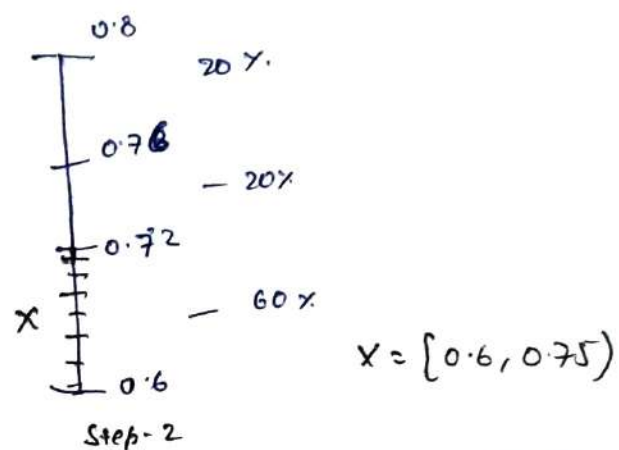 0.8
20 %.
0.76
— 20%
0.72
X
— 60 %
X = [0.6, 0.75)
0.6
Step-2